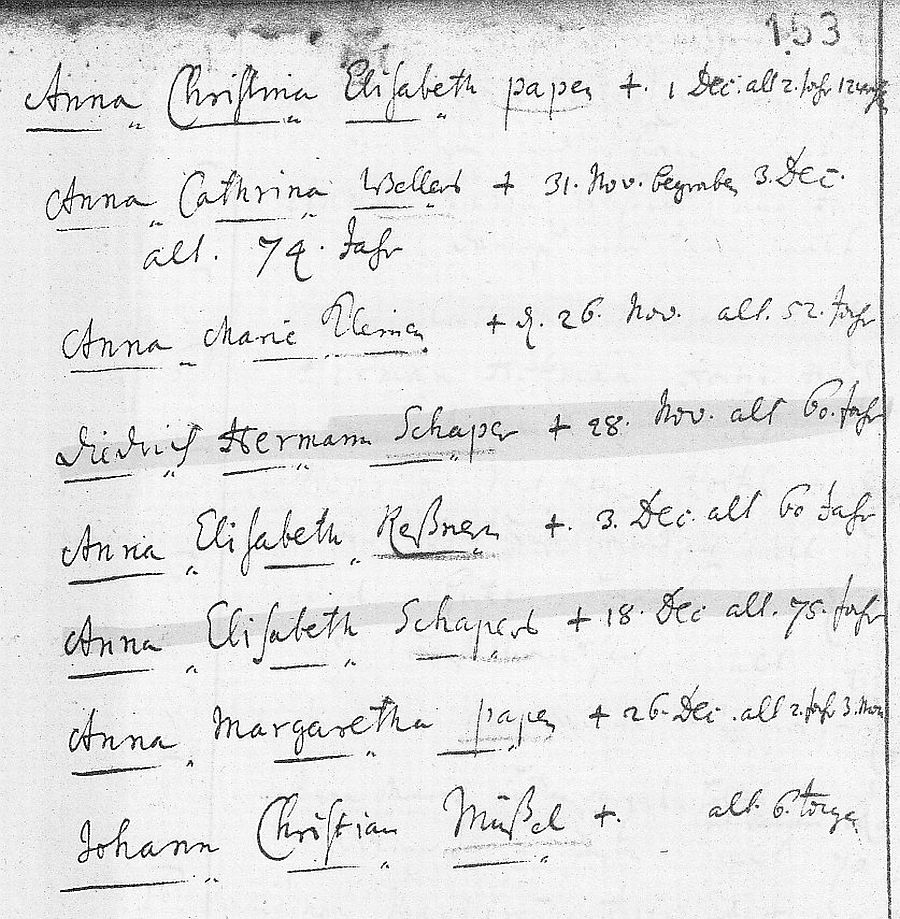 153
Anna Christina Elisabeth papen +. 1 Dec. alt 2. Jahr 12
Anna Cathrina Wellers + 31. Nov. begraben 3. Dec.
alt. 74. Jahr
Anna Marie + d. 26. Nov. alt. 52. Jahr
Diedrich Hermann Schaper + 28. Nov. alt 60. Jahr
Anna Elisabeth Keßners +. 3. Dec. alt 60 Jahr
Anna Elisabeth Schapers + 18. Dec alt. 75. Jahr
Anna Margaretha papen + 26. Dec. alt 2. Jahr 3. Mon
Johann Christian Müßel +. alt. 6. tage